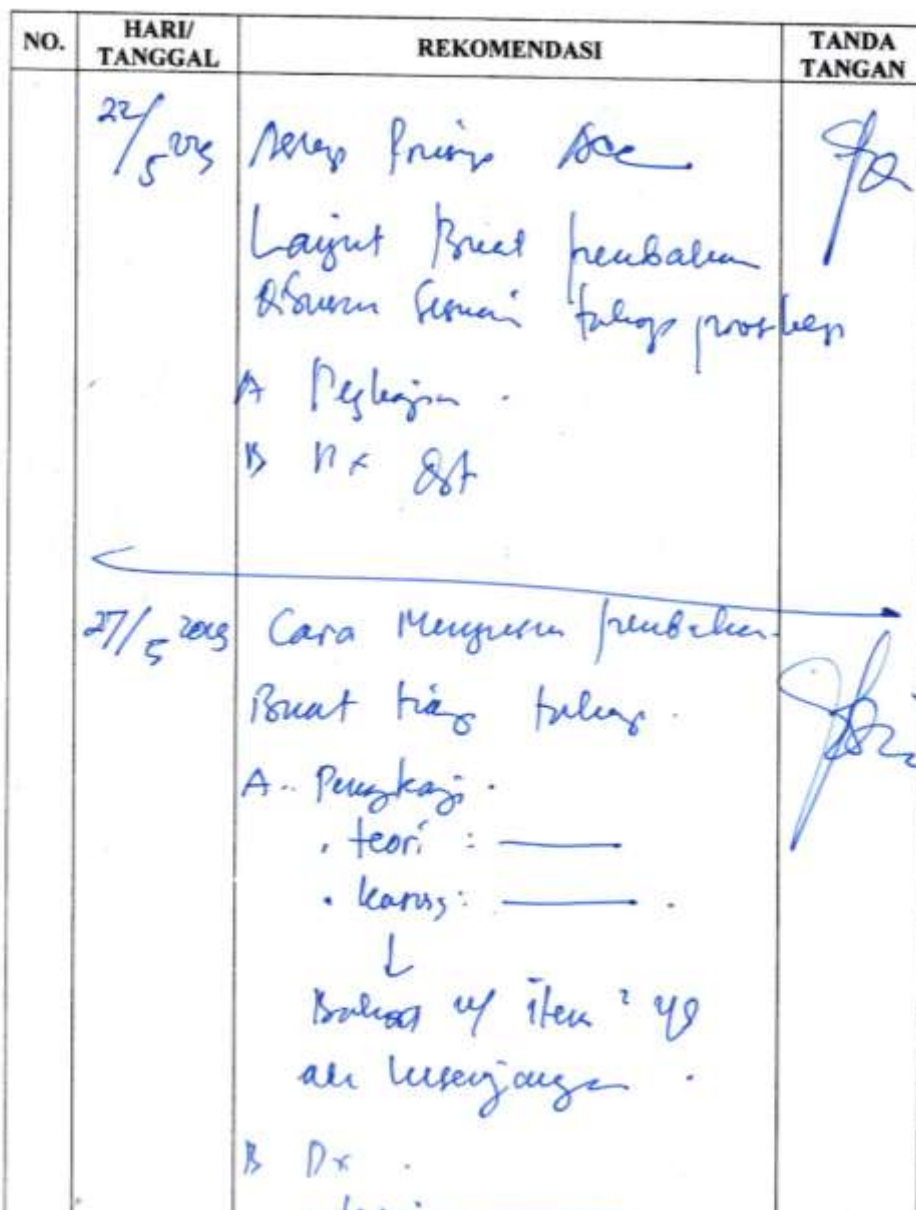 NO. HARI/ TANGGAL REKOMENDASI TANDA TANGAN
22/5 2019 Prinsip Acc
Lanjut Buat pembahasan
disusun sesuai tahap proskep
A Pegkajian .
B Dx dst
27/5 2019 Cara Menyusun pembahasan
Buat tiap tahap .
A. Pengkaji .
. teori :
. kasus :
Bahas u/ item ² yg
ada kesenjangan .
B Dx .